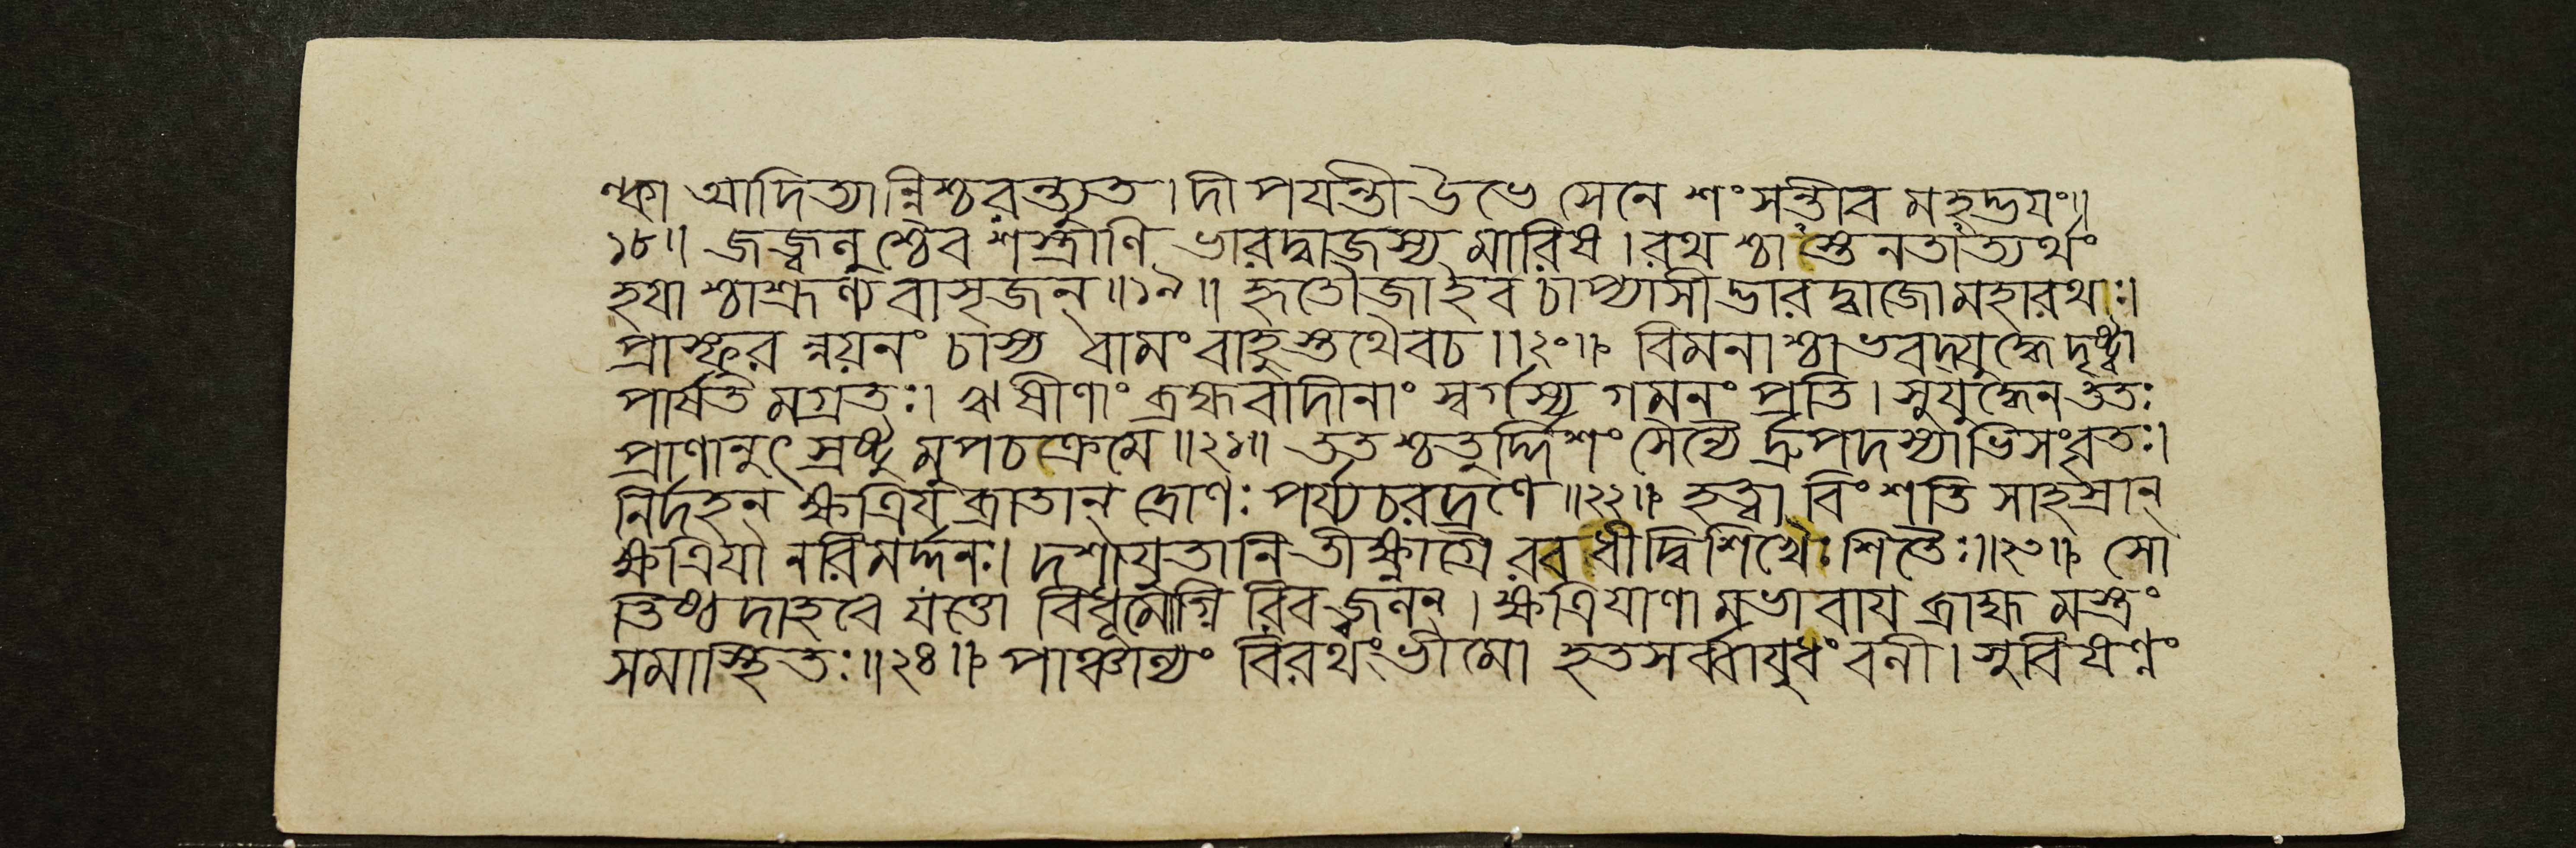 ল্কা আদিত্যান্নিশ্চরন্ত্যুত । দীপযন্তী উভে সেনে শংসন্তীব মহদ্ভযং ॥
১৮ ॥ জজ্বলুশ্চৈব শস্ত্রাণি ভারদ্বাজস্য মারিষ । রথাশ্চাস্তনতাত্যর্থং
হযাশ্চাশ্রূণ্যবাসৃজন্ ॥ ১৯ ॥ হৃতৌজা ইব চাপ্যাসীদ্ভারদ্বাজো মহারথাঃ ।
প্রাস্ফুরন্নয়নং চাস্য বামং বাহুস্তথৈবচ ॥ ২০ ॥ বিমনাশ্চাভবদ্যুদ্ধে দৃষ্ট্বা
পার্ষতমগ্রতঃ । ঋষীণাং ব্রহ্মবাদীনাং স্বর্গস্য গমনং প্রতি । সুযুদ্ধেন ততঃ
প্রাণানুৎস্রষ্টুমুপচক্রেমে ॥ ২১ ॥ ততশ্চতুর্দ্দিশং সৈন্যৈর্দ্রুপদস্যাভিসংবৃতঃ ।
নির্দহন্ ক্ষত্রিযব্রাতান্ দ্রোণঃ পর্য্যচরদ্রণে ॥ ২২ ॥ হত্বা বিংশতি সাহস্রান্
ক্ষত্রিযানরিমর্দ্দনঃ । দশাযুতানি তীক্ষ্ণাগ্রৈরবধীদ্বিশিখৈঃ শিতৈঃ ॥ ২৩ ॥ সো
তিষ্ঠদাহবে যত্তো বিধূমোগ্নিরিব জ্বলন্ । ক্ষত্রিযাণামভাবায ব্রাহ্মমস্ত্রং
সমাস্থিতঃ ॥ ২৪ ॥ পাঞ্চাল্যং বিরথং ভীমো হতসর্ব্বাযুধং বলী । সুবিষণ্ণং